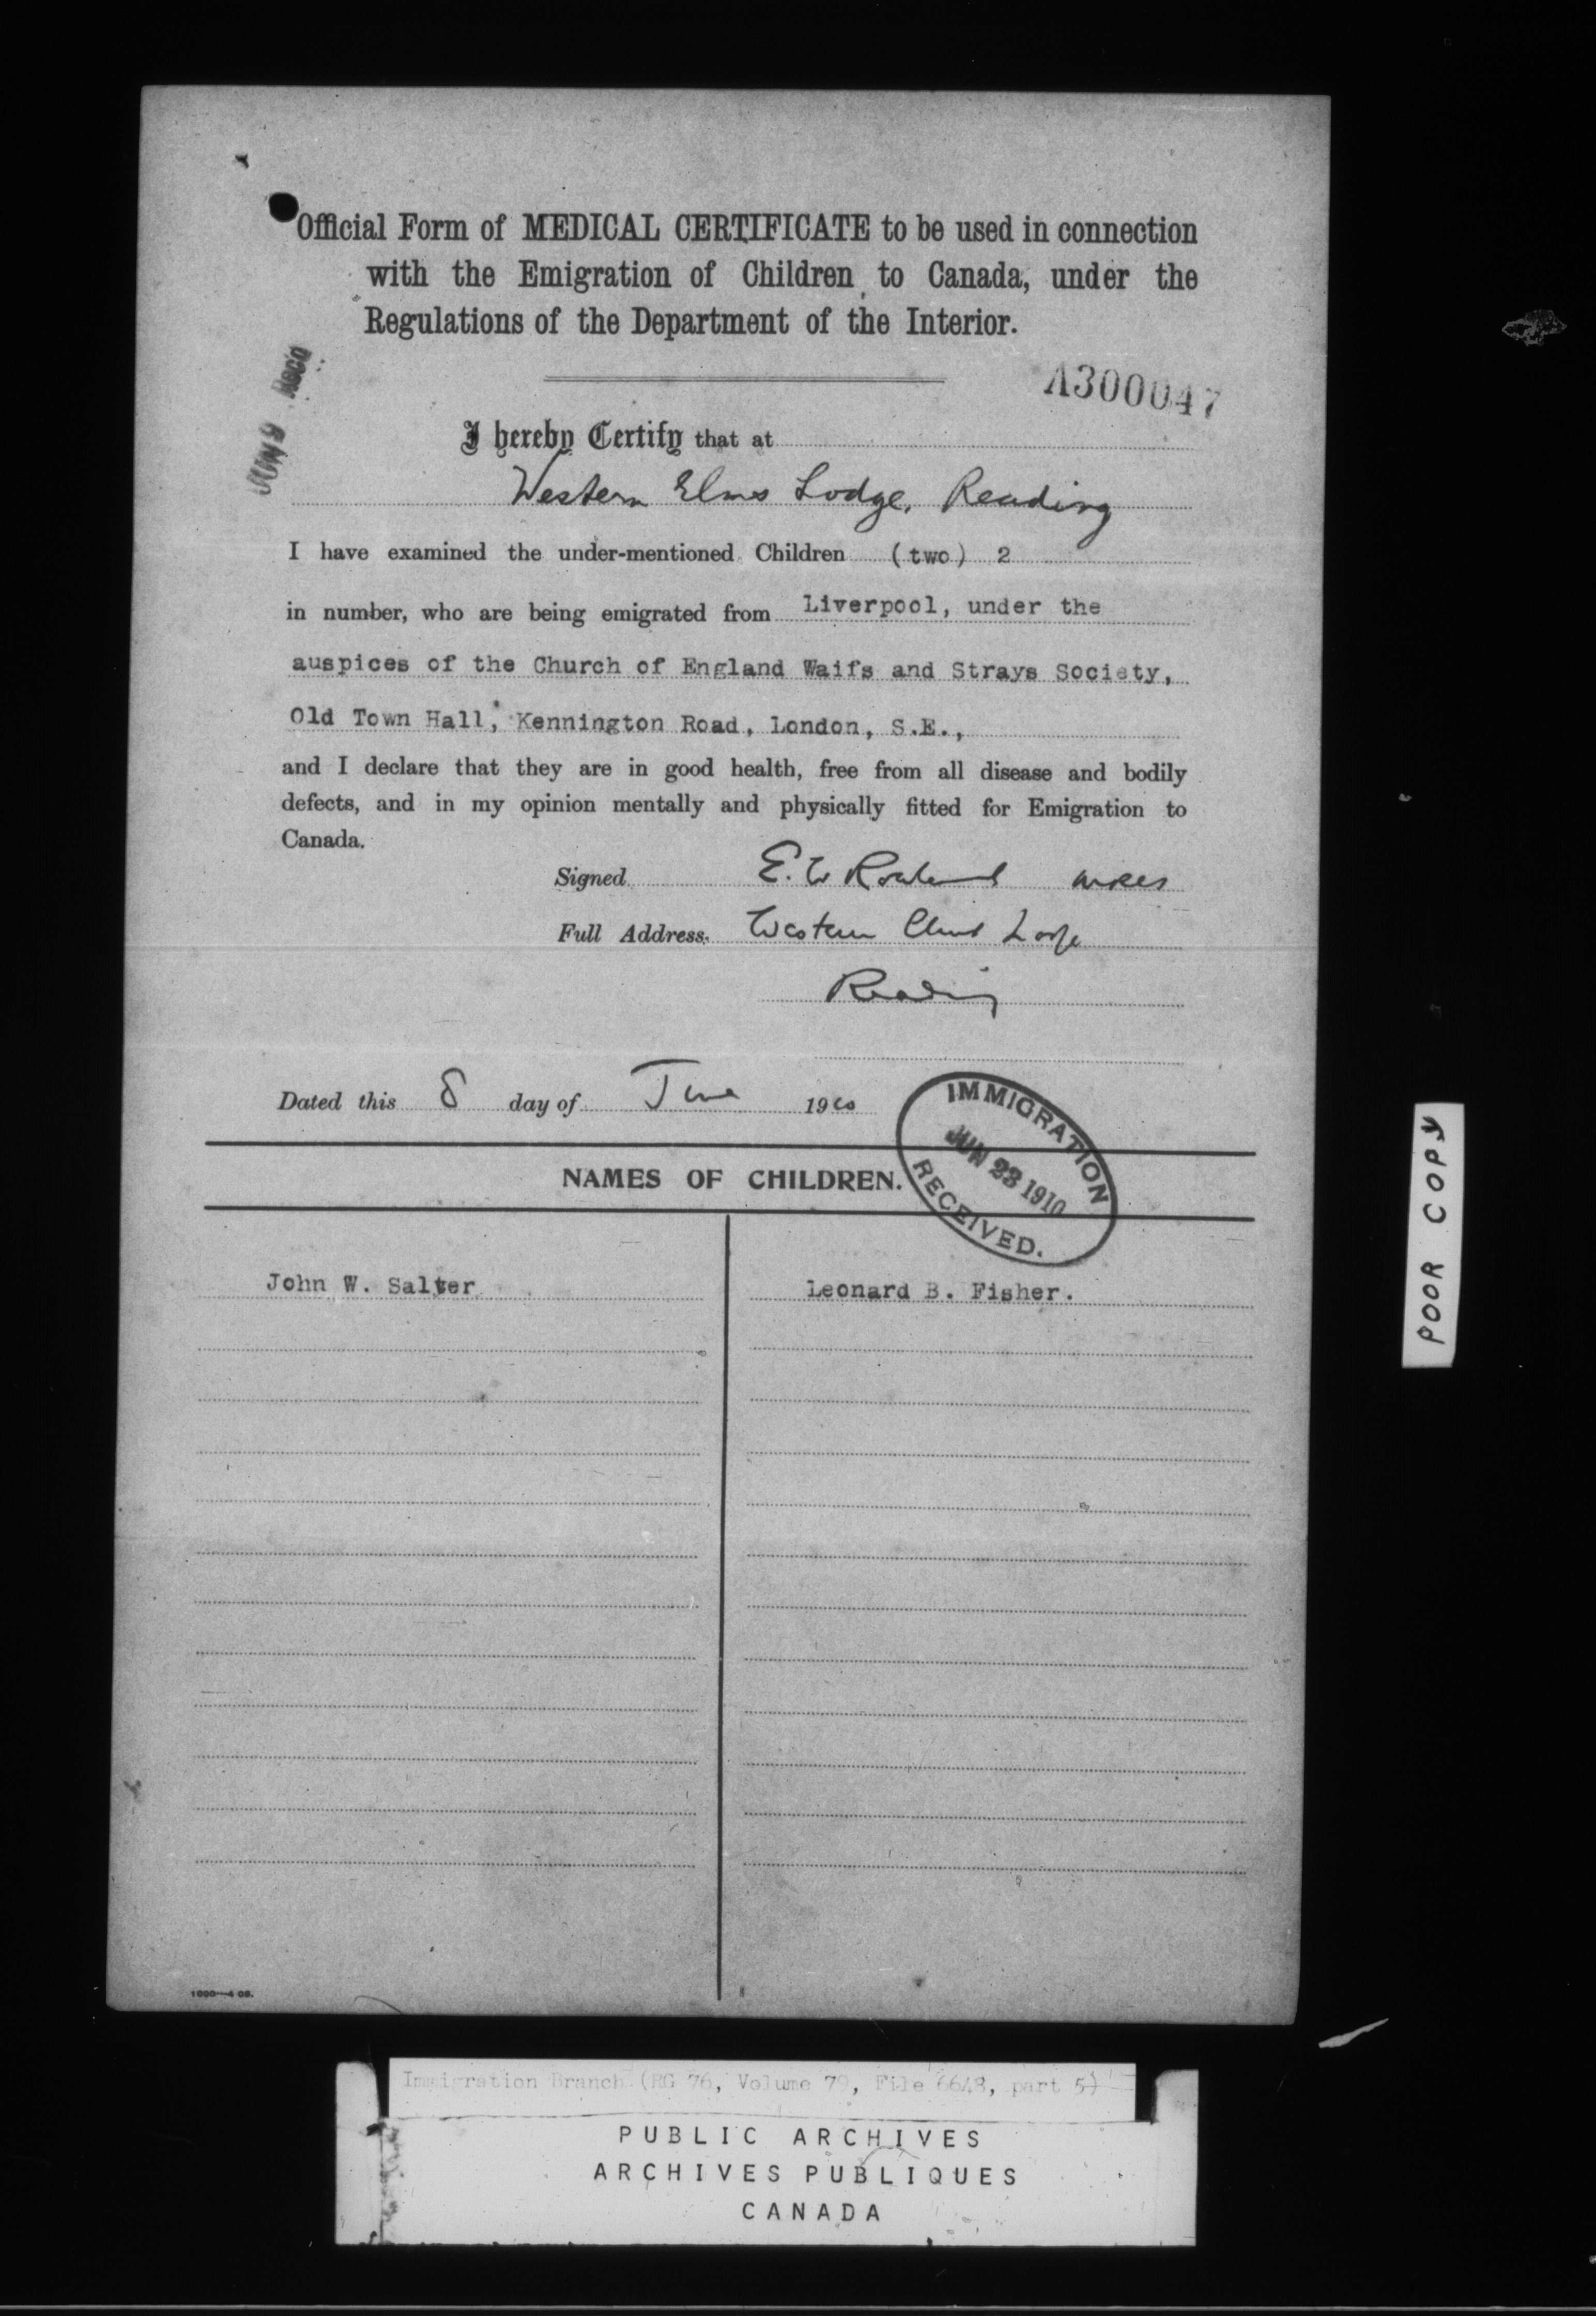 Official Form of MEDICAL CERTIFICATE to be used in connection
with the Emigration of Children to Canada, under the
Regulations of the Department of the Interior.
JUN 9 Recd
A300047
I hereby Certify that at
Western Elms Lodge, Reading
I have examined the under-mentioned Children (two) 2
in number, who are being emigrated from Liverpool, under the
auspices of the Church of England Waifs and Strays Society,
Old Town Hall, Kennington Road, London, S.E.,
and I declare that they are in good health, free from all disease and bodily
defects, and in my opinion mentally and physically fitted for Emigration to
Canada.
Signed E. W Rowland MRCS
Full Address. Western Elms Lodge
Reading
Dated this 8 day of June 1910
IMMIGRATION
JUN 23 1910
RECEIVED.
NAMES OF CHILDREN.
John W. Salter
Leonard B. Fisher.
POOR COPY
Immigration Branch (RG 76, Volume 79, File 6648, part 5)
PUBLIC ARCHIVES
ARCHIVES PUBLIQUES
CANADA